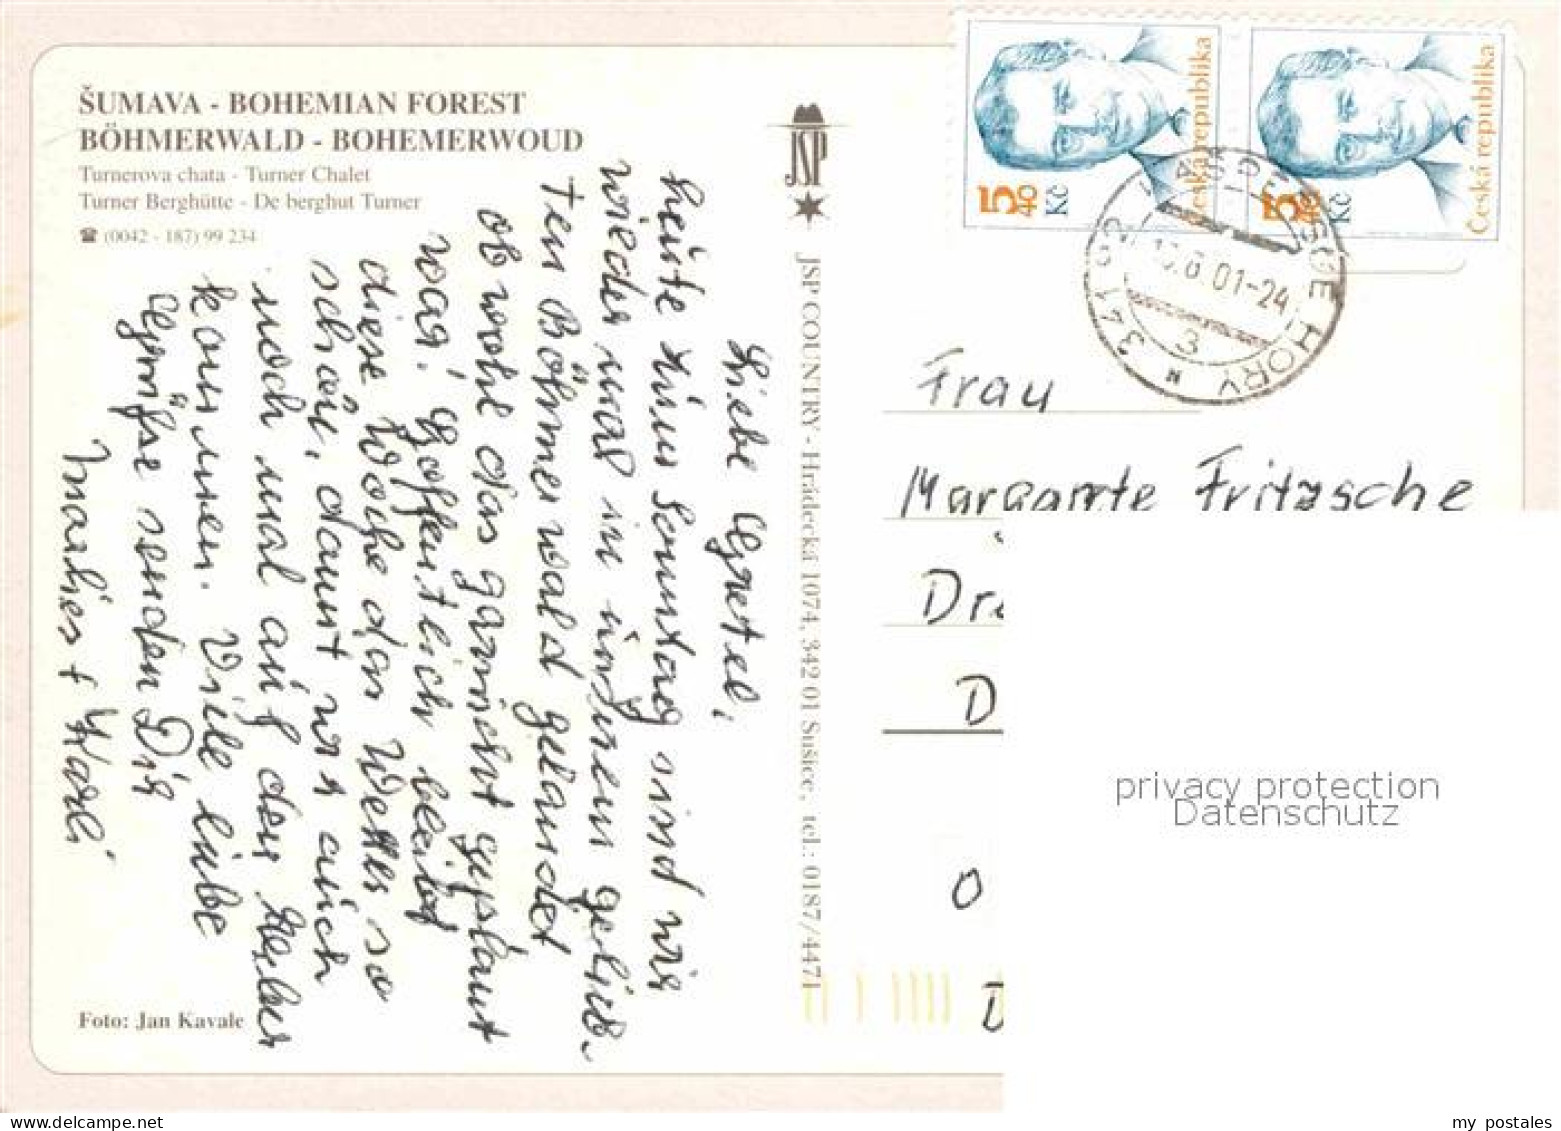 ŠUMAVA - BOHEMIAN FOREST
BÖHMERWALD - BOHEMERWOUD
Turnerova chata - Turner Chalet
Turner Berghütte - De berghut Turner
☎ (0042 - 187) 99 234
Liebe Gretel,
heute zum Sonntag sind wir
wieder mal in unserem gelieb-
ten Böhmerwald gelandet
ob wohl das garnicht geplant
war. Hoffentlich bleibt
diese Woche das Wetter so
schön, damit wir auch
noch mal auf den
kommen. Viele liebe
Grüße senden Dir
Marlies + Karli
Foto: Jan Kavale
JSP
JSP COUNTRY - Hrádecká 1074, 342 01 Sušice, tel.: 0187/4471
Česká republika
5 40 Kč
Česká republika
5 40 Kč
KAŠPERSKÉ HORY
341 92
.6.01-24
3
Frau
Margarete Fritzsche
Dre
D
O
D
privacy protection
Datenschutz
my postales